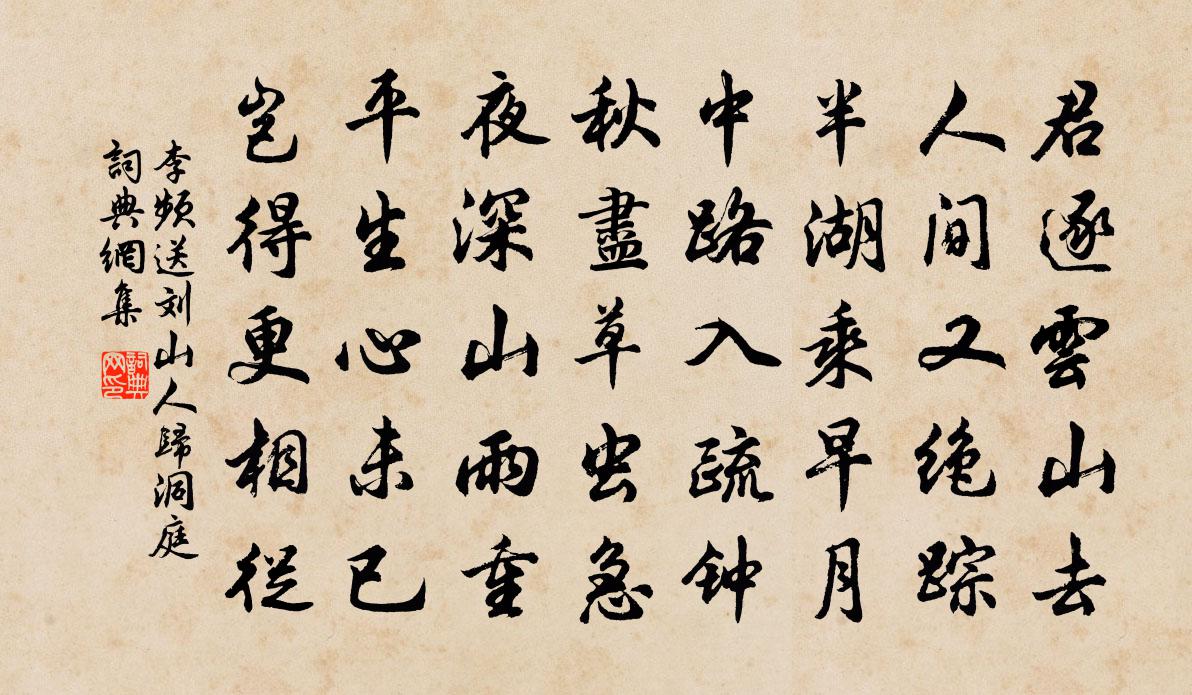 君逐雲山去
人间又绝踪
半湖乘早月
中路入疏钟
秋盡草虫急
夜深山雨重
平生心未已
岂得更相從
李频送刘山人歸洞庭
詞典網集
詞典
网印